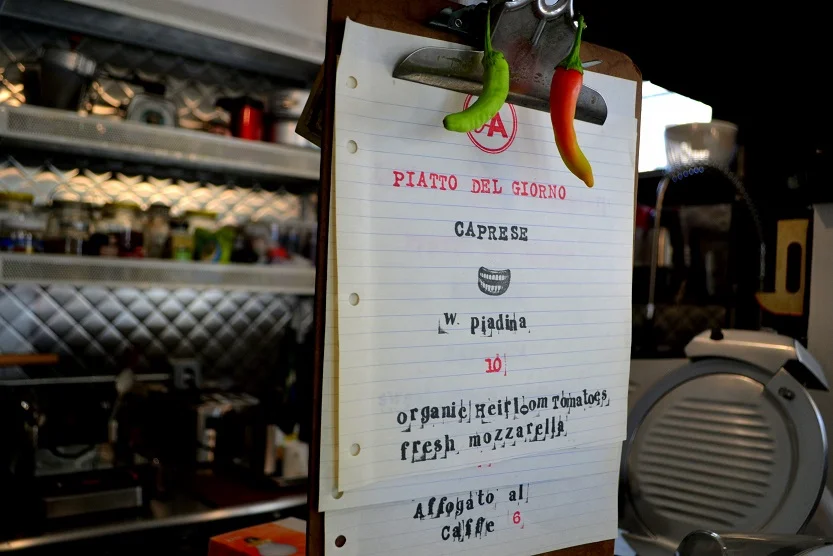 A
PIATTO DEL GIORNO
CAPRESE
W. Piadina
10
organic Heirloom Tomatoes
fresh mozzarella
Affogato al
Caffe 6